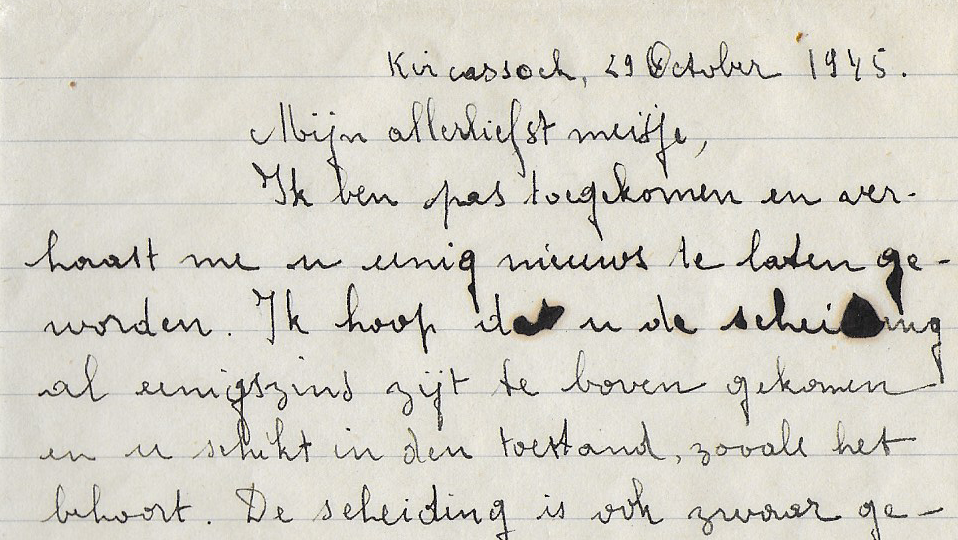 Kircassock, 29 October 1945.
Mijn allerliefst meisje,
Ik ben pas toegekomen en ver-
haast me u eenig nieuws te laten ge-
worden. Ik hoop dat u de scheiding
al eenigszins zijt te boven gekomen
en u schikt in den toestand, zooals het
behoort. De scheiding is ook zwaar ge-